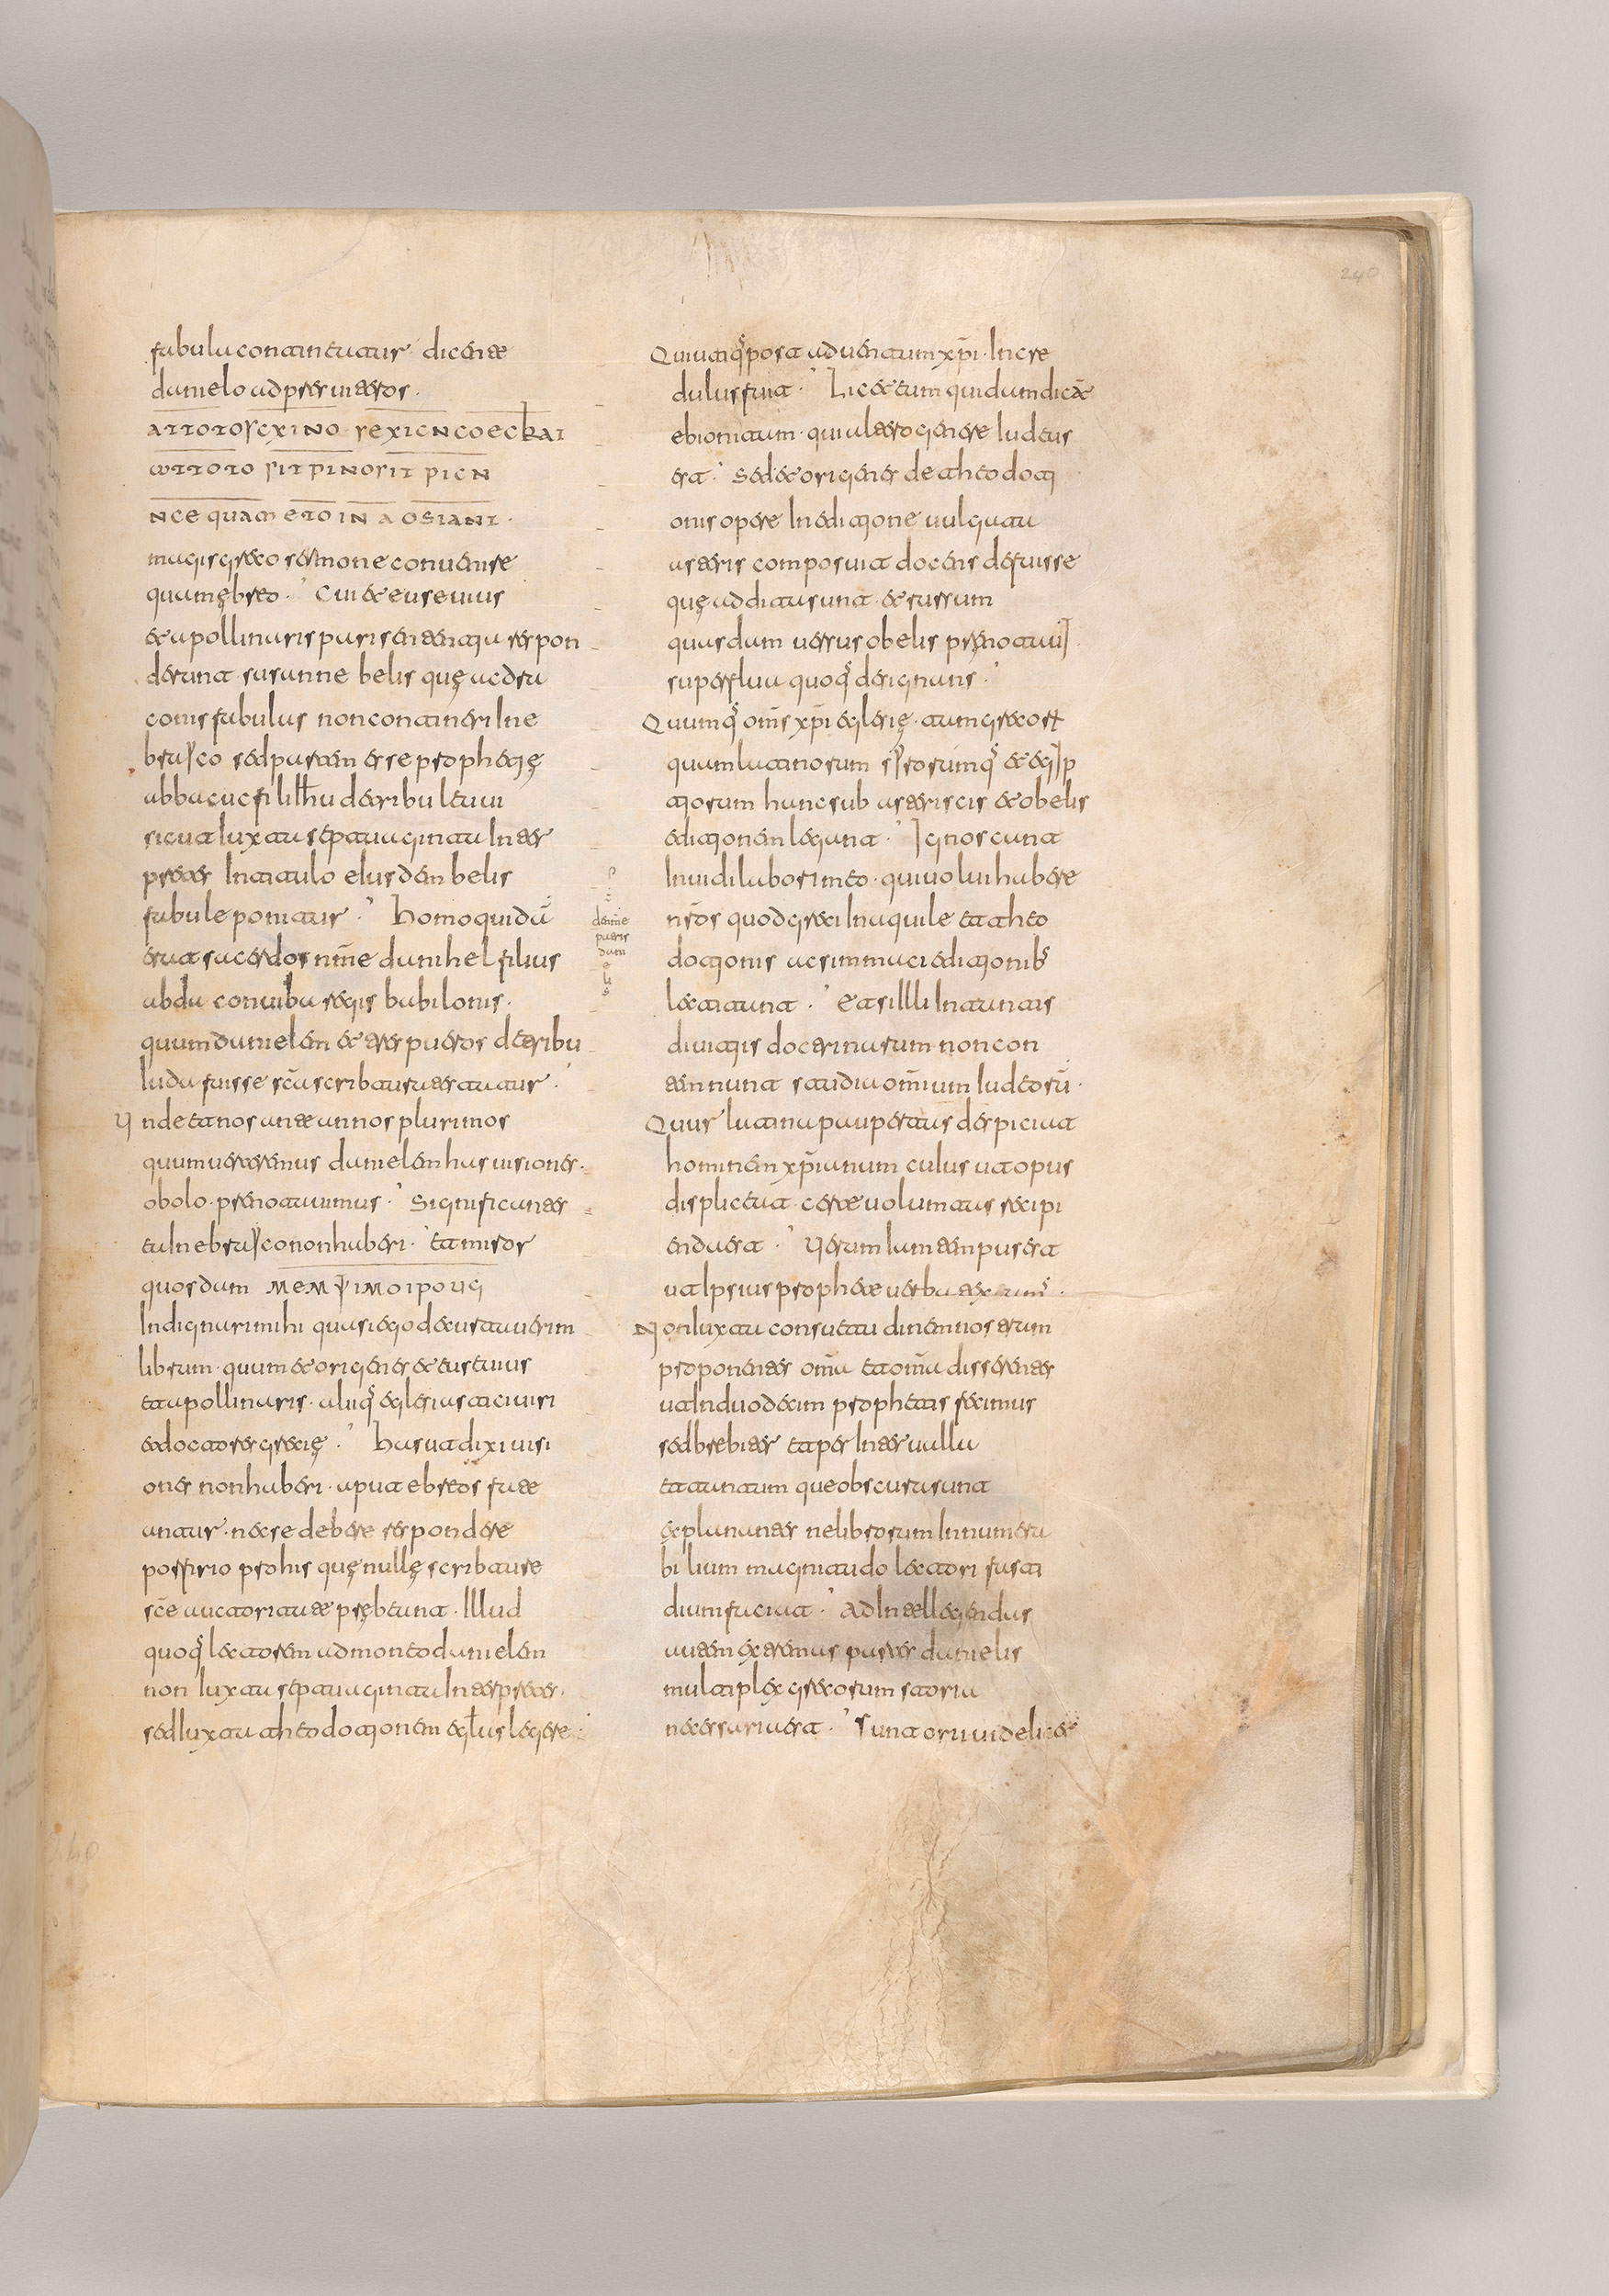 fabula contineatur · dicente
danielo ad presuiteros ·
magis greco sermone conuenire
quam ębreo · Cui et euseuius
et apollinaris pari sententia respon
derunt · susanne belis quę ac dra
conis fabulas non contineri In e
brayco sed partem esse prophetię
abbacuc filii Ihu de tribu leui
sicut Iuxta septuaginta Inter
pretes In titulo eiusdem belis
fabule ponitur · Homo quidā
erat sacerdos nm̄e danihel filius
abda conuiba regis babilonis ·
quum danielem et tres pueros de tribu
Iuda fuisse sc̄a scribtura testatur ·
Unde et nos ante annos plurimos
quum uerteremus danielem has uisiones ·
obolo · prenotauimus · Significantes
eas In ebrayco non haberi · et miror
quosdam
Indignari mihi quasi ego decurtauerim
librum · quum et origenes et euseuius
et apollinaris · aliiq̄ eglesiastici uiri
et doctores grecię · has ut dixi uisi
ones non haberi · aput ebreos fate
antur · nec se debere respondere
porfirio pro his quę nullę scribture
sc̄e auctoritate prębeunt · Illud
quoq̄ lectorem admoneo danielem
non Iuxta septuaginta Interpretes ·
sed Iuxta theodotionem egl̄as legere ·
ð
dn̄i nm̄e
patris
dani
e
li
s
Qui utiq̄ post aduentum xp̄i · Incre
dulus fuit · Licet eum quidam dicāt
ebionitam · qui altero genere Iudeus
est · sed et origenes de theodoti
onis opere In editione uulgata
asteris composuit docens defuisse
quę addita sunt · et rursum
quasdam uersus obelis prenotauit
superflua quoq̄ designans ·
Quumq̄ om̄s xp̄i eglesię · tum grecor̄
quum latinorum syrorumq̄ et egip
tiorum hanc sub asteriscis et obelis
editionem legant · Ignoscunt
Inuidi labori meo · qui uolui habere
nr̄os quod greci In aquile et theo
dotionis ac simmaci editionib̄
lectitant · Et si Illi In tantis
diuitiis doctrinarum non con
temnunt studia om̄ium Iudeorū ·
Quur latina paupertas despiciat
hominem xp̄ianum cuius ut opus
displiceat certe uoluntas recipi
enda est · Uerum Iam tempus est
ut Ipsius prophete uerba
Non Iuxta consuetudinem nostram
proponentes om̄a et om̄a disserentes
ut In duodecim prophetis fecimus
sed brebiter et per Interualla
ea tantum que obscura sunt
explanantes ne librorum Innumera
bilium magnitudo lectori fasti
dium faciat · Ad Intellegendas
autem extremas partes danielis
multiplex grecorum storia
necessaria est · Suntorii uidelicet
240